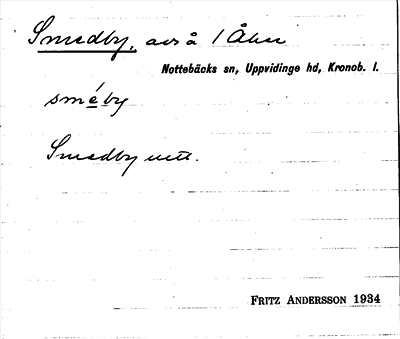 Smedby, avs å 1 Åker
Nottebäcks sn, Uppvidinge hd, Kronob. l.
sméby
Smedby utt.
FRITZ ANDERSSON 1934